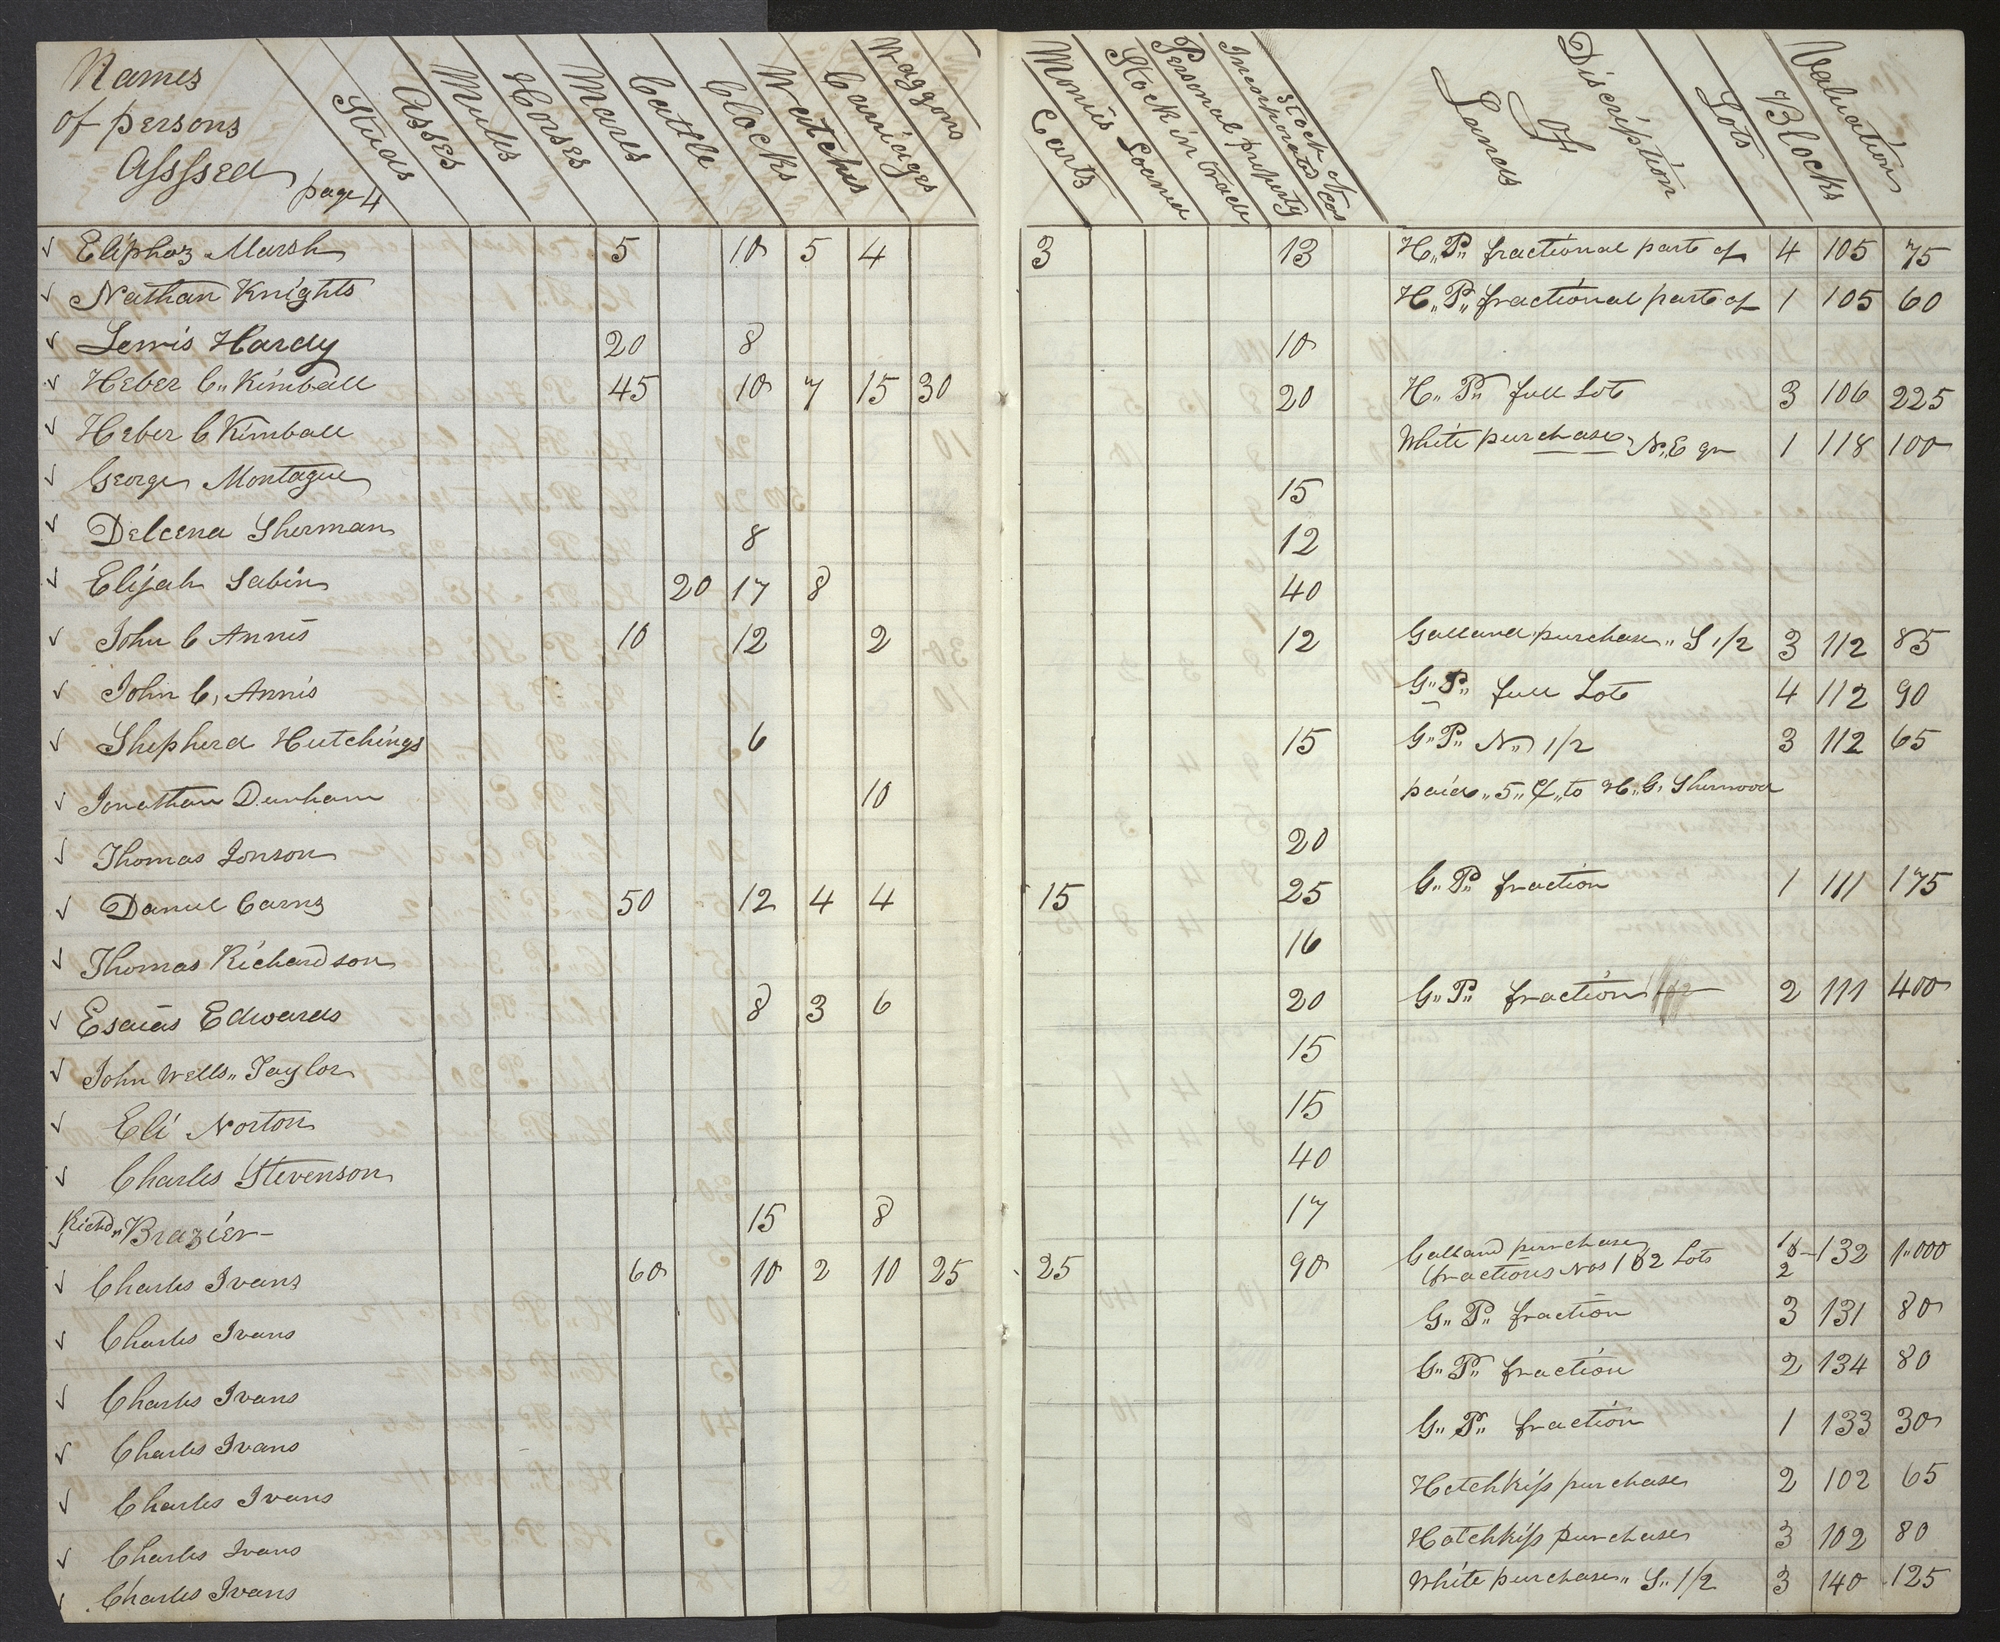 Names of persons Assssed page 4 Studs Asses Mules Horses Mares Cattle Clocks Watches Carriages Waggons Carts Monies Loaned Stock in trade Personal property Stock of Incorporated Cos Discription Of Lands Lots Blocks Valuation
Eliphaz Marsh 5 10 5 4 3 13 H,, P,, fractional part of 4 105 75
Nathan Knights H,, P,, fractional part of 1 105 60
Lewis Hardy 20 8 10
Heber C,, Kimball 45 10 7 15 30 20 H,, P,, full Lot 3 106 225
Heber C Kimball White purchase N,, E qr 1 118 100
George Montague 15
Delcena Sherman 8 12
Elijah Sabin 20 17 8 40
John C Annis 10 12 2 12 Galland purchase,, S 1/2 3 112 85
John C, Annis G,, P,, full Lot 4 112 90
Shepherd Hutchings 6 15 G,, P,, N,, 1/2 3 112 65
Jonathan Dunham 10 paid,, 5,, to H,, G, Sherwood
Thomas Jonson 20
Daniel Carns 50 12 4 4 15 25 G,, P,, fraction 1 111 175
Thomas Richardson 16
Esaias Edwards 8 3 6 20 G,, P,, fraction 2 111 400
John Wells,, Taylor 15
Eli Norton 15
Charles Stevenson 40
Richd,, Brazier 15 8 17
Charles Ivans 60 10 2 10 25 25 90 Galland purchase fractions Nos 1 & 2 Lots 1 & 2 132 1,,000
Charles Ivans G,, P,, fraction 3 131 80
Charles Ivans G,, P,, fraction 2 134 80
Charles Ivans G,, P,, fraction 1 133 30
Charles Ivans Hotchkiss purchase 2 102 65
Charles Ivans Hotchkiss purchase 3 102 80
Charles Ivans White purchase,, S,, 1/2 3 140 125